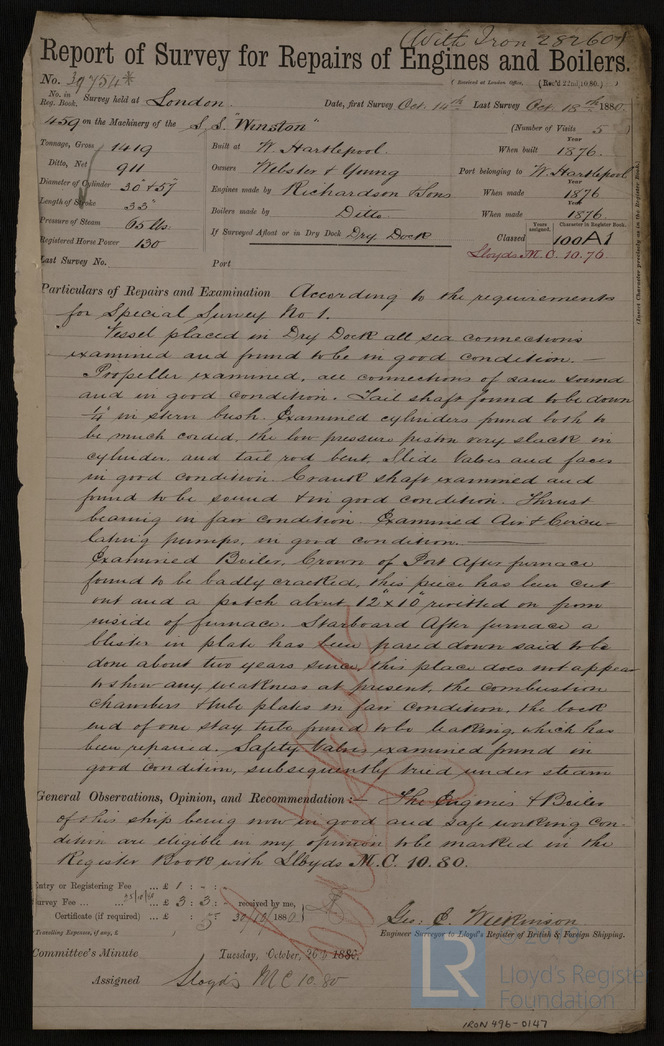 (With Iron 28260)
Report of Survey for Repairs of Engines and Boilers.
No. 39754*
(Received at London Office, (Rec'd 22nd.10.80.)
No. in Reg. Book. Survey held at London. Date, first Survey Oct. 14th Last Survey Oct. 18th 1880.
459 on the Machinery of the S.S. "Winston" (Number of Visits 5)
Tonnage, Gross 1419 Built at W. Hartlepool. When built Year 1876.
Ditto, Net 911 Owners Webster & Young Port belonging to W. Hartlepool
Diameter of Cylinder 30" & 57" Engines made by Richardson & Sons When made Year 1876
Length of Stroke 33" Boilers made by Ditto. When made Year 1876
Pressure of Steam 65 lbs. If Surveyed Afloat or in Dry Dock Dry Dock Classed Years assigned. Character in Register Book. 100A1
Registered Horse Power 130 Lloyds M.C. 10.76
Last Survey No. Port
(Insert Character precisely as in the Register Book.)
Particulars of Repairs and Examination According to the requirements
for Special Survey No 1.
Vessel placed in Dry Dock all sea connections
examined and found to be in good condition. —
Propeller examined, all connections of same sound
and in good condition. Tail shaft found to be down
¼" in stern bush. Examined cylinders found both to
be much corded, the low pressure piston very slack in
cylinder, and tail rod bent, Slide Valves and faces
in good condition. Crank shaft examined and
found to be sound & in good condition. Thrust
bearing in fair condition. Examined Air & Circu-
lating pumps, in good condition.
Examined Boiler, Crown of Port After furnace
found to be badly cracked, this piece has been cut
out and a patch about 12" x 10" rivitted on from
inside of furnace. Starboard After furnace a
blister in plate has been pared down said to be
done about two years since, this place does not appear
to show any weakness at present, the combustion
chambers & tube plates in fair condition, the back
end of one stay tube found to be leaking, which has
been repaired. Safety Valves examined found in
good condition, subsequently tried under steam
General Observations, Opinion, and Recommendation :— The Engines & Boiler
of this ship being now in good and safe working con-
dition are eligible in my opinion to be marked in the
Register Book with Lloyds M.C. 10.80.
Entry or Registering Fee ... £ 1 : - :
Survey Fee ... £ 3 : 3 : received by me,
Certificate (if required) ... £ : 5
(Travelling Expenses, if any, £ )
Geo: C. Wilkinson
Engineer Surveyor to Lloyd's Register of British & Foreign Shipping.
Committee's Minute Tuesday, October, 26th 1880.
Assigned Lloyd's MC 10.80
LR
Lloyd's Register
Foundation
IRON 496-0147